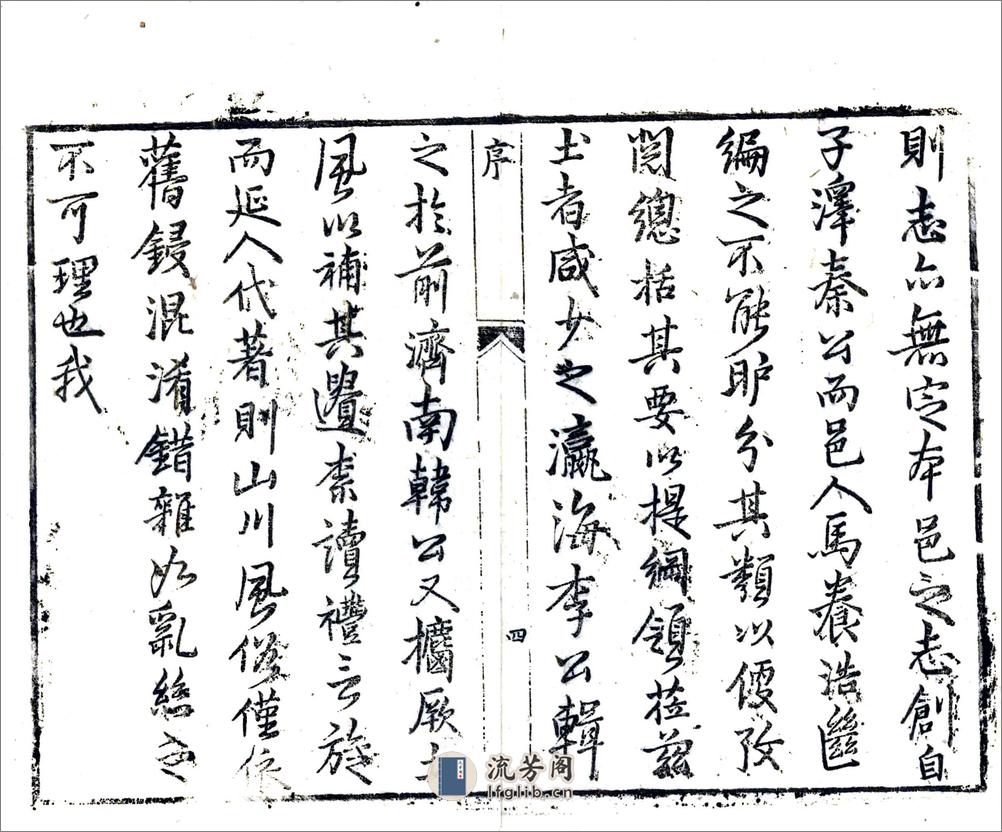 則志亦無定本邑之志創自
子澤秦公而邑人馬養浩繼
編之不能眆分其類以便攷
閱總括其要以提綱領蒞茲
土者咸少之瀛海李公輯
序
四
之於前濟南韓公又攟厥土
風以補其遺素讀禮言旋
而延入代著則山川風俗僅仍
舊鋟混淆錯雜如亂絲之
不可理也我
流芳阁
lfglib.cn